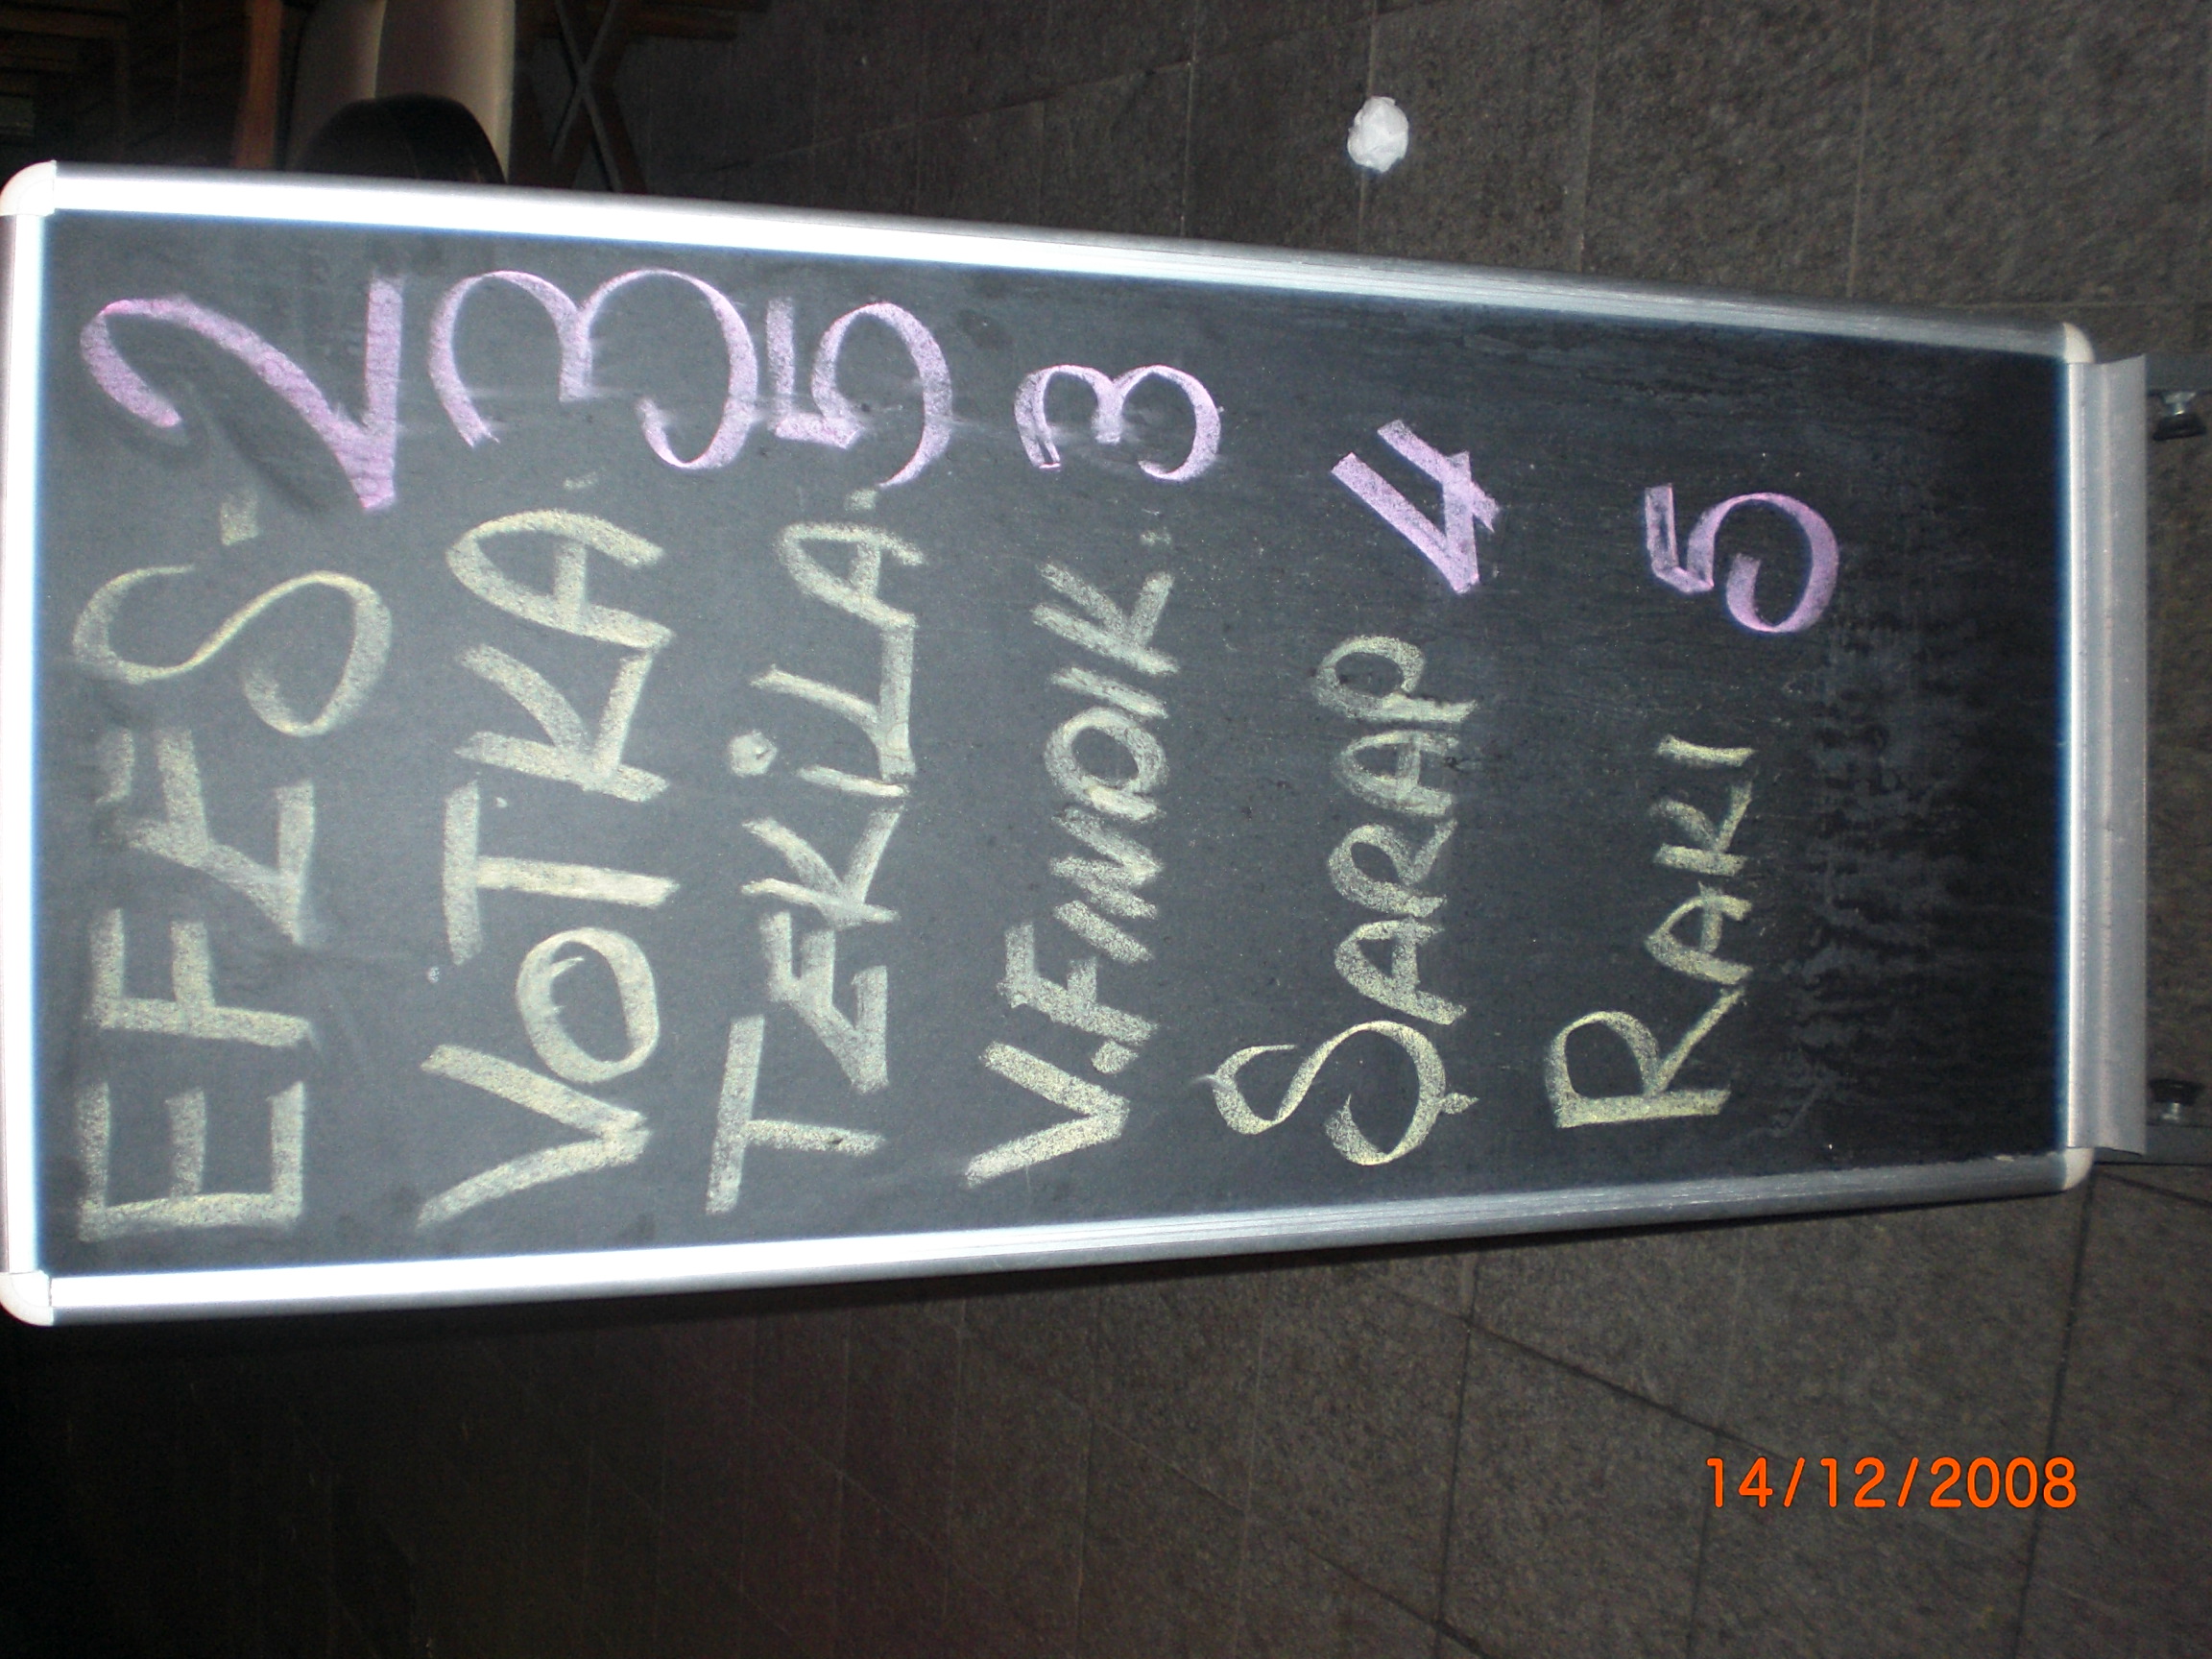 EFES - 2
VOTKA. 3
TEKİLA. 5
V.FINDIK. 3
ŞARAP 4
RAKI 5
14/12/2008